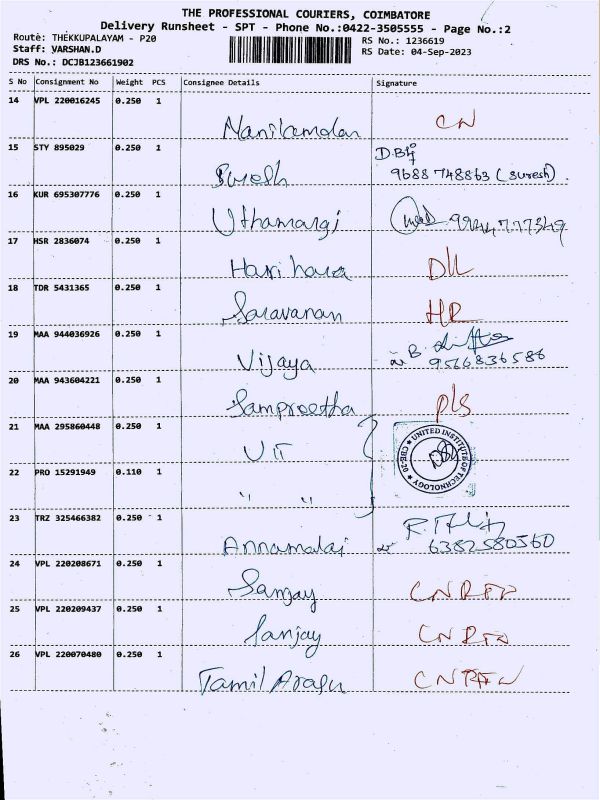 THE PROFESSIONAL COURIERS, COIMBATORE
Delivery Runsheet - SPT - Phone No.:0422-3505555 - Page No.:2
Route: THEKKUPALAYAM - P20
RS No.: 1236619
Staff: VARSHAN.D
RS Date: 04-Sep-2023
DRS No.: DCJB123661902
S No Consignment No Weight PCS Consignee Details Signature
14 VPL 220016245 0.250 1
Manikandan CN
15 STY 895029 0.250 1 D.B
Suresh 9688748863 (Suresh).
16 KUR 695307776 0.250 1
Uthamargi
17 HSR 2836074 0.250 1
Hari hara DLL
18 TDR 5431365 0.250 1
Saravanan HR
19 MAA 944036926 0.250 1 B.
Vijaya 9566836586
20 MAA 943604221 0.250 1
Sampreetha pls
21 MAA 295860448 0.250 1
UIT
UNITED INSTITUTE OF TECHNOLOGY ★ CBE-20 ★
22 PRO 15291949 0.110 1
" "
23 TRZ 325466382 0.250 1
Annamalai 6382580560
24 VPL 220208671 0.250 1
Sanjay CNRFN
25 VPL 220209437 0.250 1
Sanjay CNRFN
26 VPL 220070480 0.250 1
Tamil Arasu CNRFN